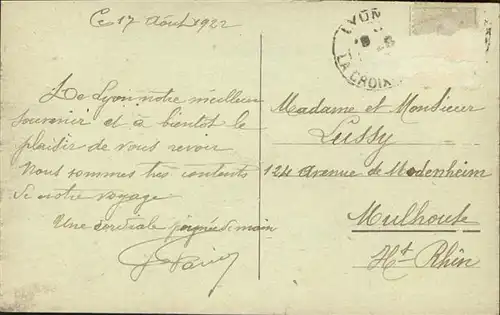 Ce 17 Août 1922
LYON
LA CROIX
De Lyon notre meilleur
souvenir et à bientôt le
plaisir de vous revoir
Nous sommes très contents
de notre voyage
Une cordiale poignée de main
Madame et Monsieur
Lussy
124 Avenue de Modenheim
Mulhouse
Ht Rhin